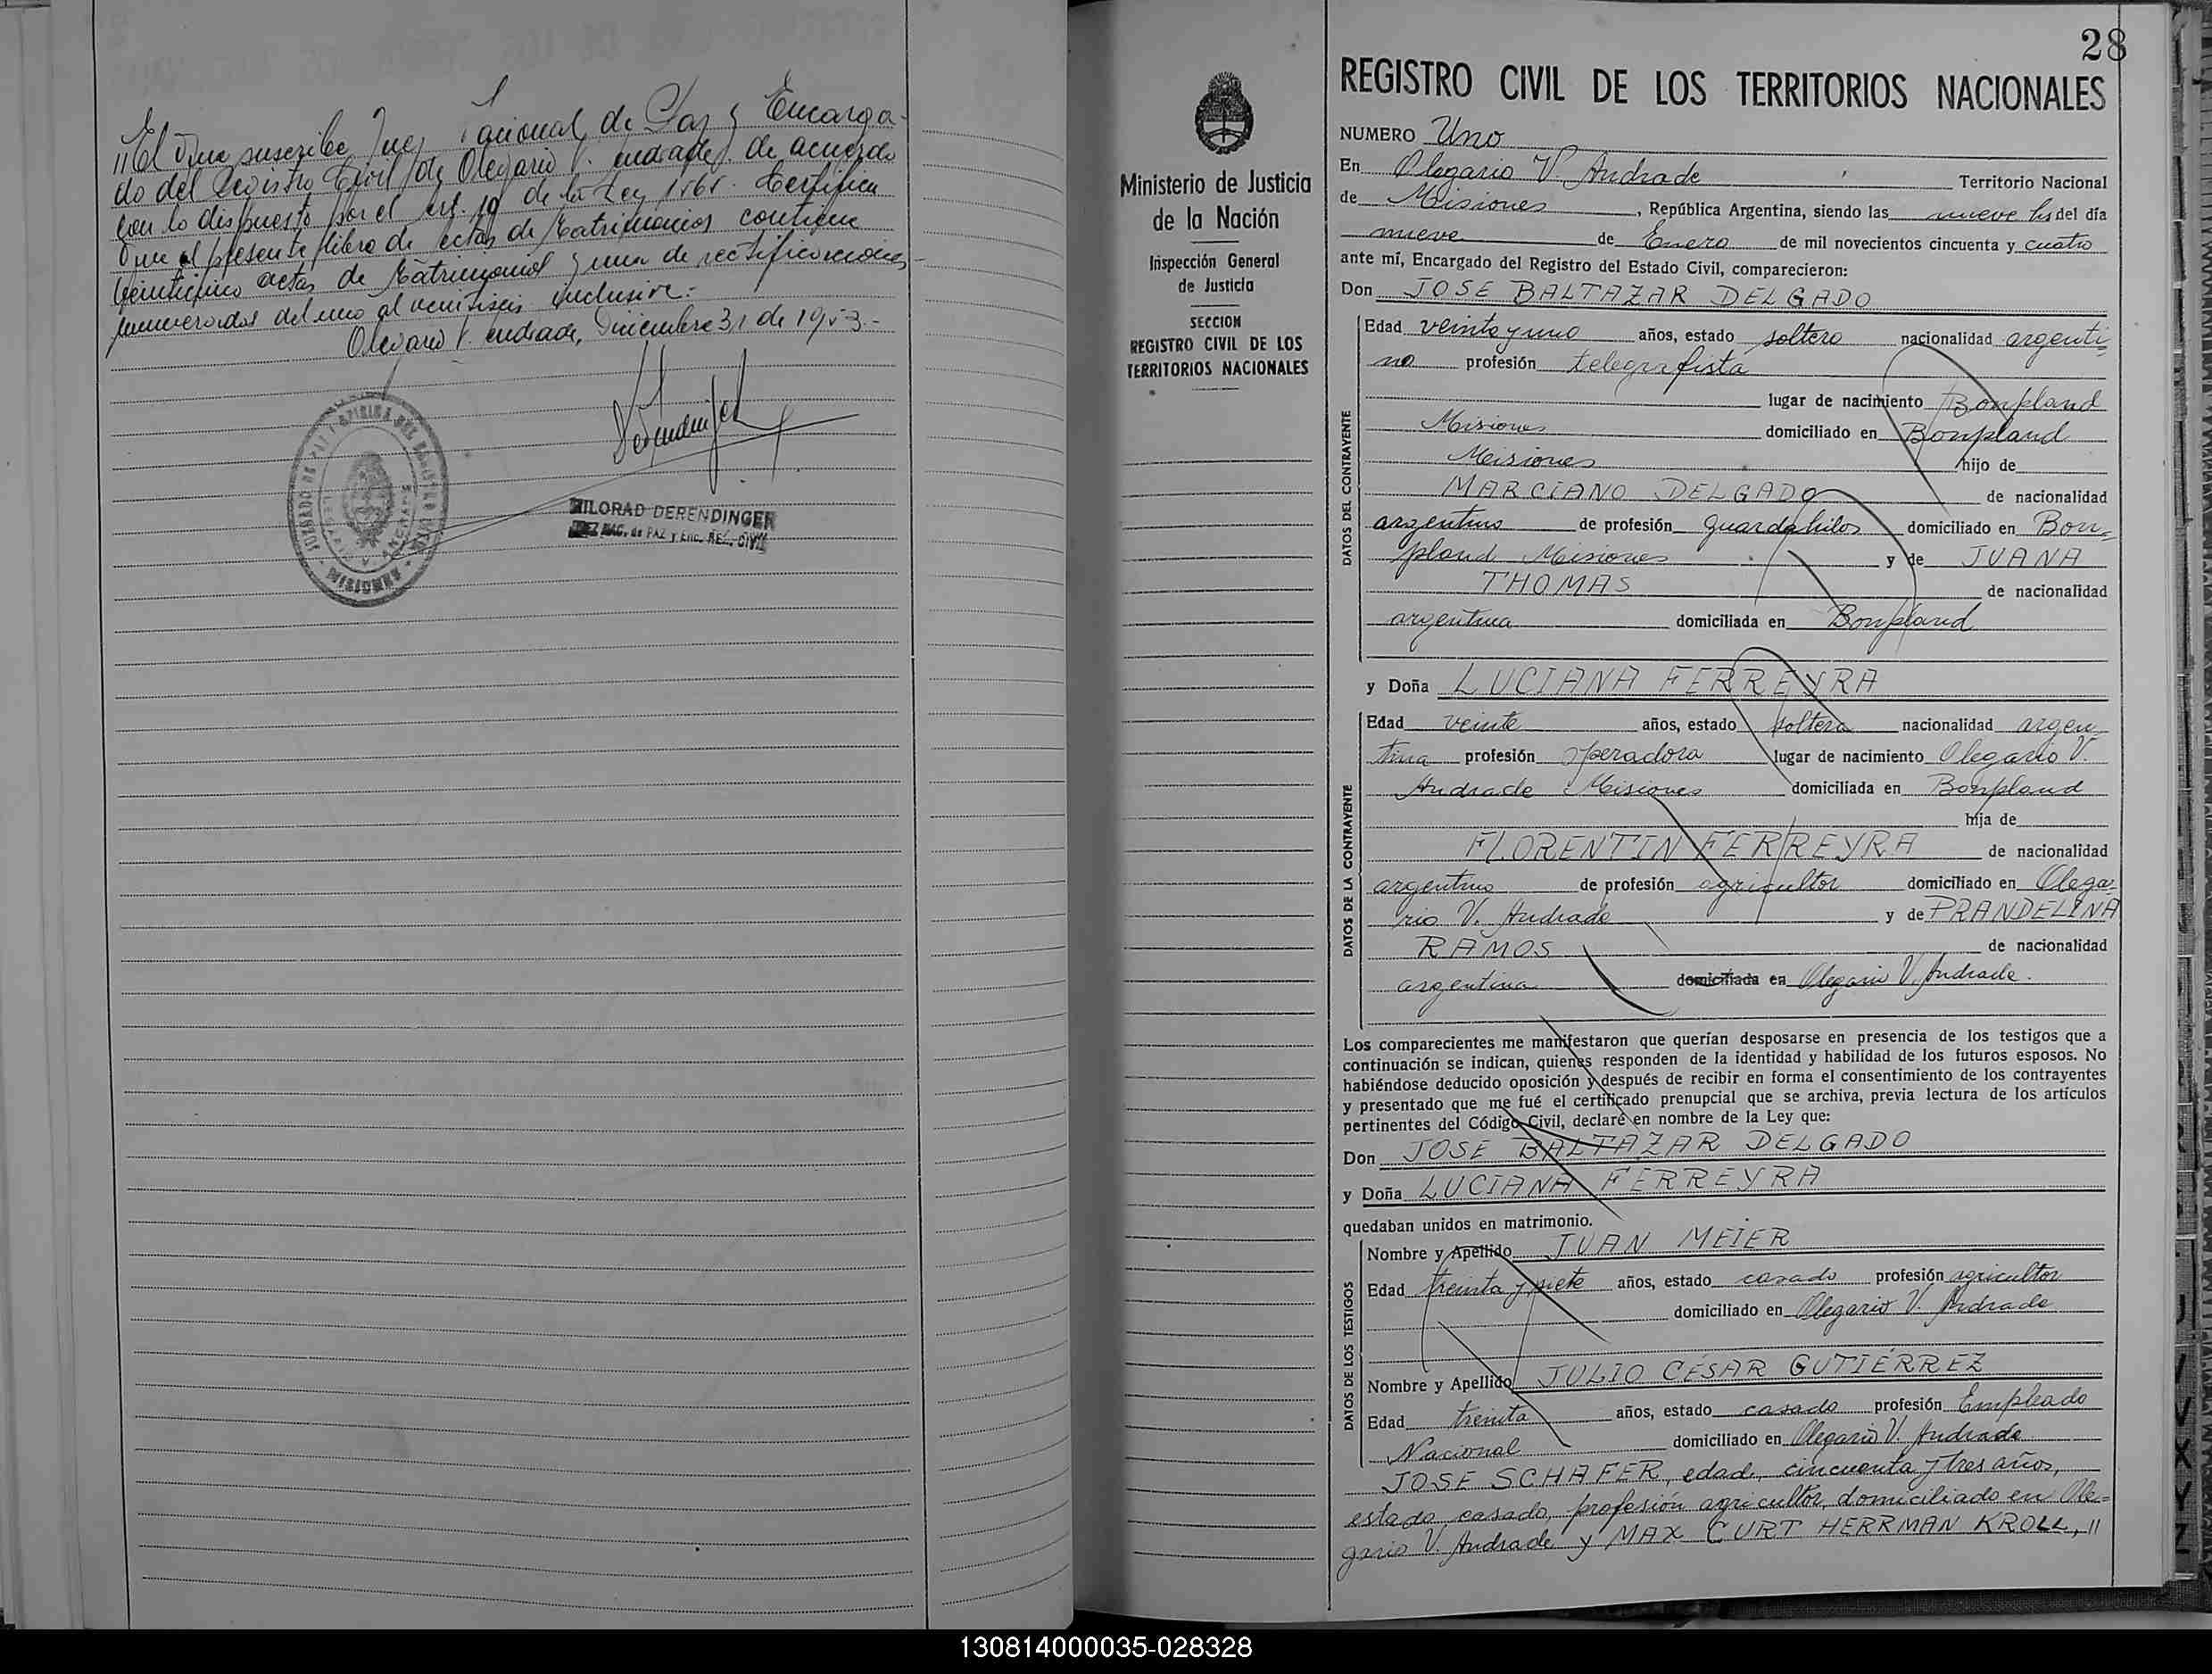 El que suscribe Juez Nacional de Paz y Encarga-
do del Registro Civil de Olegario V. Andrade, de acuerdo
con lo dispuesto por el art. de la Ley 1565. Certifica
que el presente libro de actas de Matrimonios contiene
veinticinco actas de Matrimonios y una de rectificaciones
numerados del uno al veintiseis inclusive.-
Olegario V. Andrade, Diciembre 31 de 1953.-
JUZGADO DE PAZ Y OFICINA DEL REGISTRO CIVIL
MISIONES
MILORAD DERENDINGER
JUEZ NAC. de PAZ y Enc. REG. CIVIL
28
Ministerio de Justicia
de la Nación
Inspección General
de Justicia
SECCION
REGISTRO CIVIL DE LOS
TERRITORIOS NACIONALES
REGISTRO CIVIL DE LOS TERRITORIOS NACIONALES
NUMERO Uno
En Olegario V. Andrade Territorio Nacional
de Misiones, República Argentina, siendo las nueve hs del día
nueve de Enero de mil novecientos cincuenta y cuatro
ante mí, Encargado del Registro del Estado Civil, comparecieron:
Don JOSE BALTAZAR DELGADO
DATOS DEL CONTRAYENTE
Edad veinte y uno años, estado soltero nacionalidad argenti-
no profesión telegrafista
lugar de nacimiento Bonpland
Misiones domiciliado en Bonpland
Misiones hijo de
MARCIANO DELGADO de nacionalidad
argentino de profesión guardahilos domiciliado en Bon-
pland Misiones y de JUANA
THOMAS de nacionalidad
argentina domiciliada en Bonpland
y Doña LUCIANA FERREYRA
DATOS DE LA CONTRAYENTE
Edad veinte años, estado soltera nacionalidad argen-
tina profesión operadora lugar de nacimiento Olegario V.
Andrade Misiones domiciliada en Bonpland
hija de
FLORENTIN FERREYRA de nacionalidad
argentino de profesión agricultor domiciliado en Olega-
rio V. Andrade y de PRANDELINA
RAMOS de nacionalidad
argentina domiciliada en Olegario V. Andrade.
Los comparecientes me manifestaron que querían desposarse en presencia de los testigos que a
continuación se indican, quienes responden de la identidad y habilidad de los futuros esposos. No
habiéndose deducido oposición y después de recibir en forma el consentimiento de los contrayentes
y presentado que me fué el certificado prenupcial que se archiva, previa lectura de los artículos
pertinentes del Código Civil, declaré en nombre de la Ley que:
Don JOSE BALTAZAR DELGADO
y Doña LUCIANA FERREYRA
quedaban unidos en matrimonio.
DATOS DE LOS TESTIGOS
Nombre y Apellido JUAN MEIER
Edad treinta y siete años, estado casado profesión agricultor
domiciliado en Olegario V. Andrade
Nombre y Apellido JULIO CÉSAR GUTIÉRREZ
Edad treinta años, estado casado profesión Empleado
Nacional domiciliado en Olegario V. Andrade
JOSE SCHAFER, edad, cincuenta y tres años,
estado casado, profesión agricultor, domiciliado en Ole-
gario V. Andrade y MAX CURT HERRMAN KROLL, //
130814000035-028328